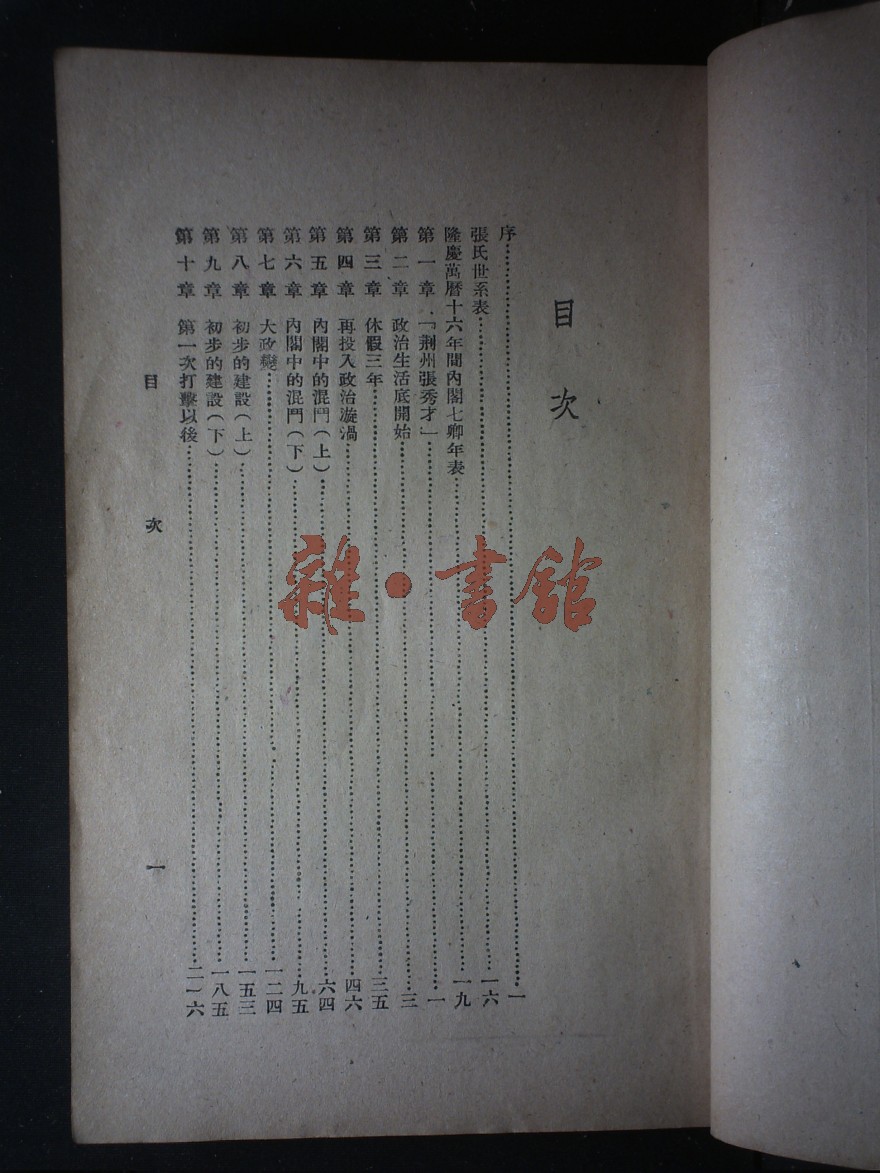 目次
序……一
張氏世系表……一六
隆慶萬曆十六年間內閣七卿年表……一九
第一章 「荆州張秀才」……一
第二章 政治生活底開始……三
第三章 休假三年……三五
第四章 再投入政治漩渦……四六
第五章 內閣中的混鬥（上）……六四
第六章 內閣中的混鬥（下）……九五
第七章 大政變……一二四
第八章 初步的建設（上）……一五三
第九章 初步的建設（下）……一八五
第十章 第一次打擊以後……二一六
目次 一
雜·書館